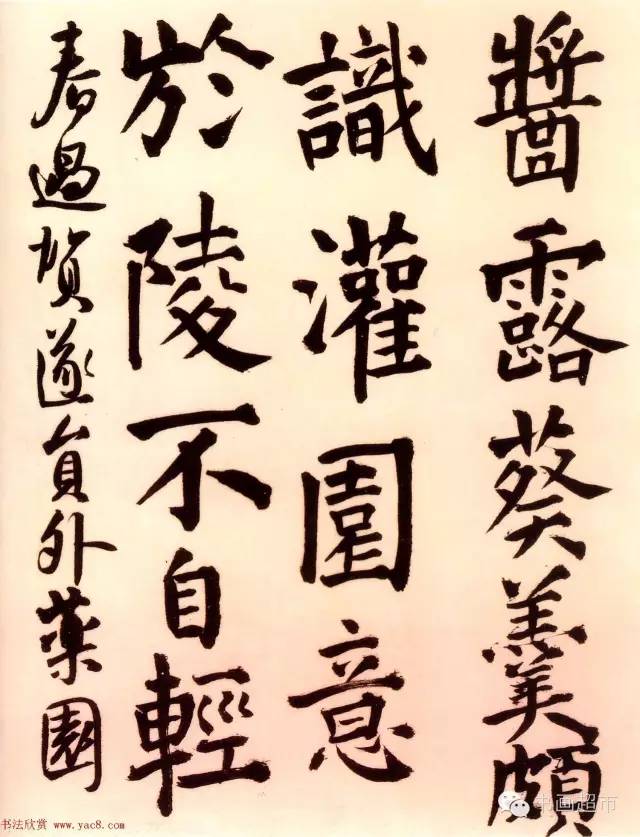 醬露葵羹頗
識灌園意
於陵不自輕
春過賀遂員外藥園
书法欣赏 www.yac8.com
书画超市